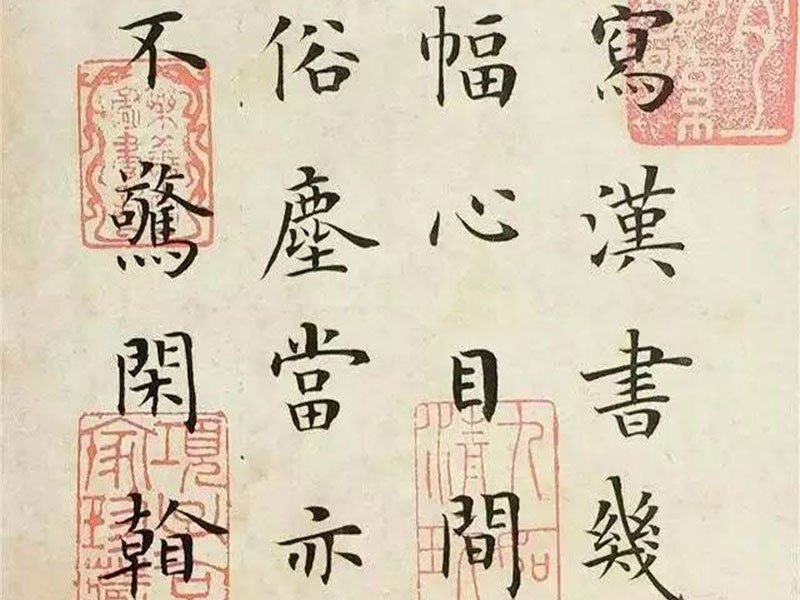 寫漢書幾
幅心目間
俗塵當亦
不驚閑翰